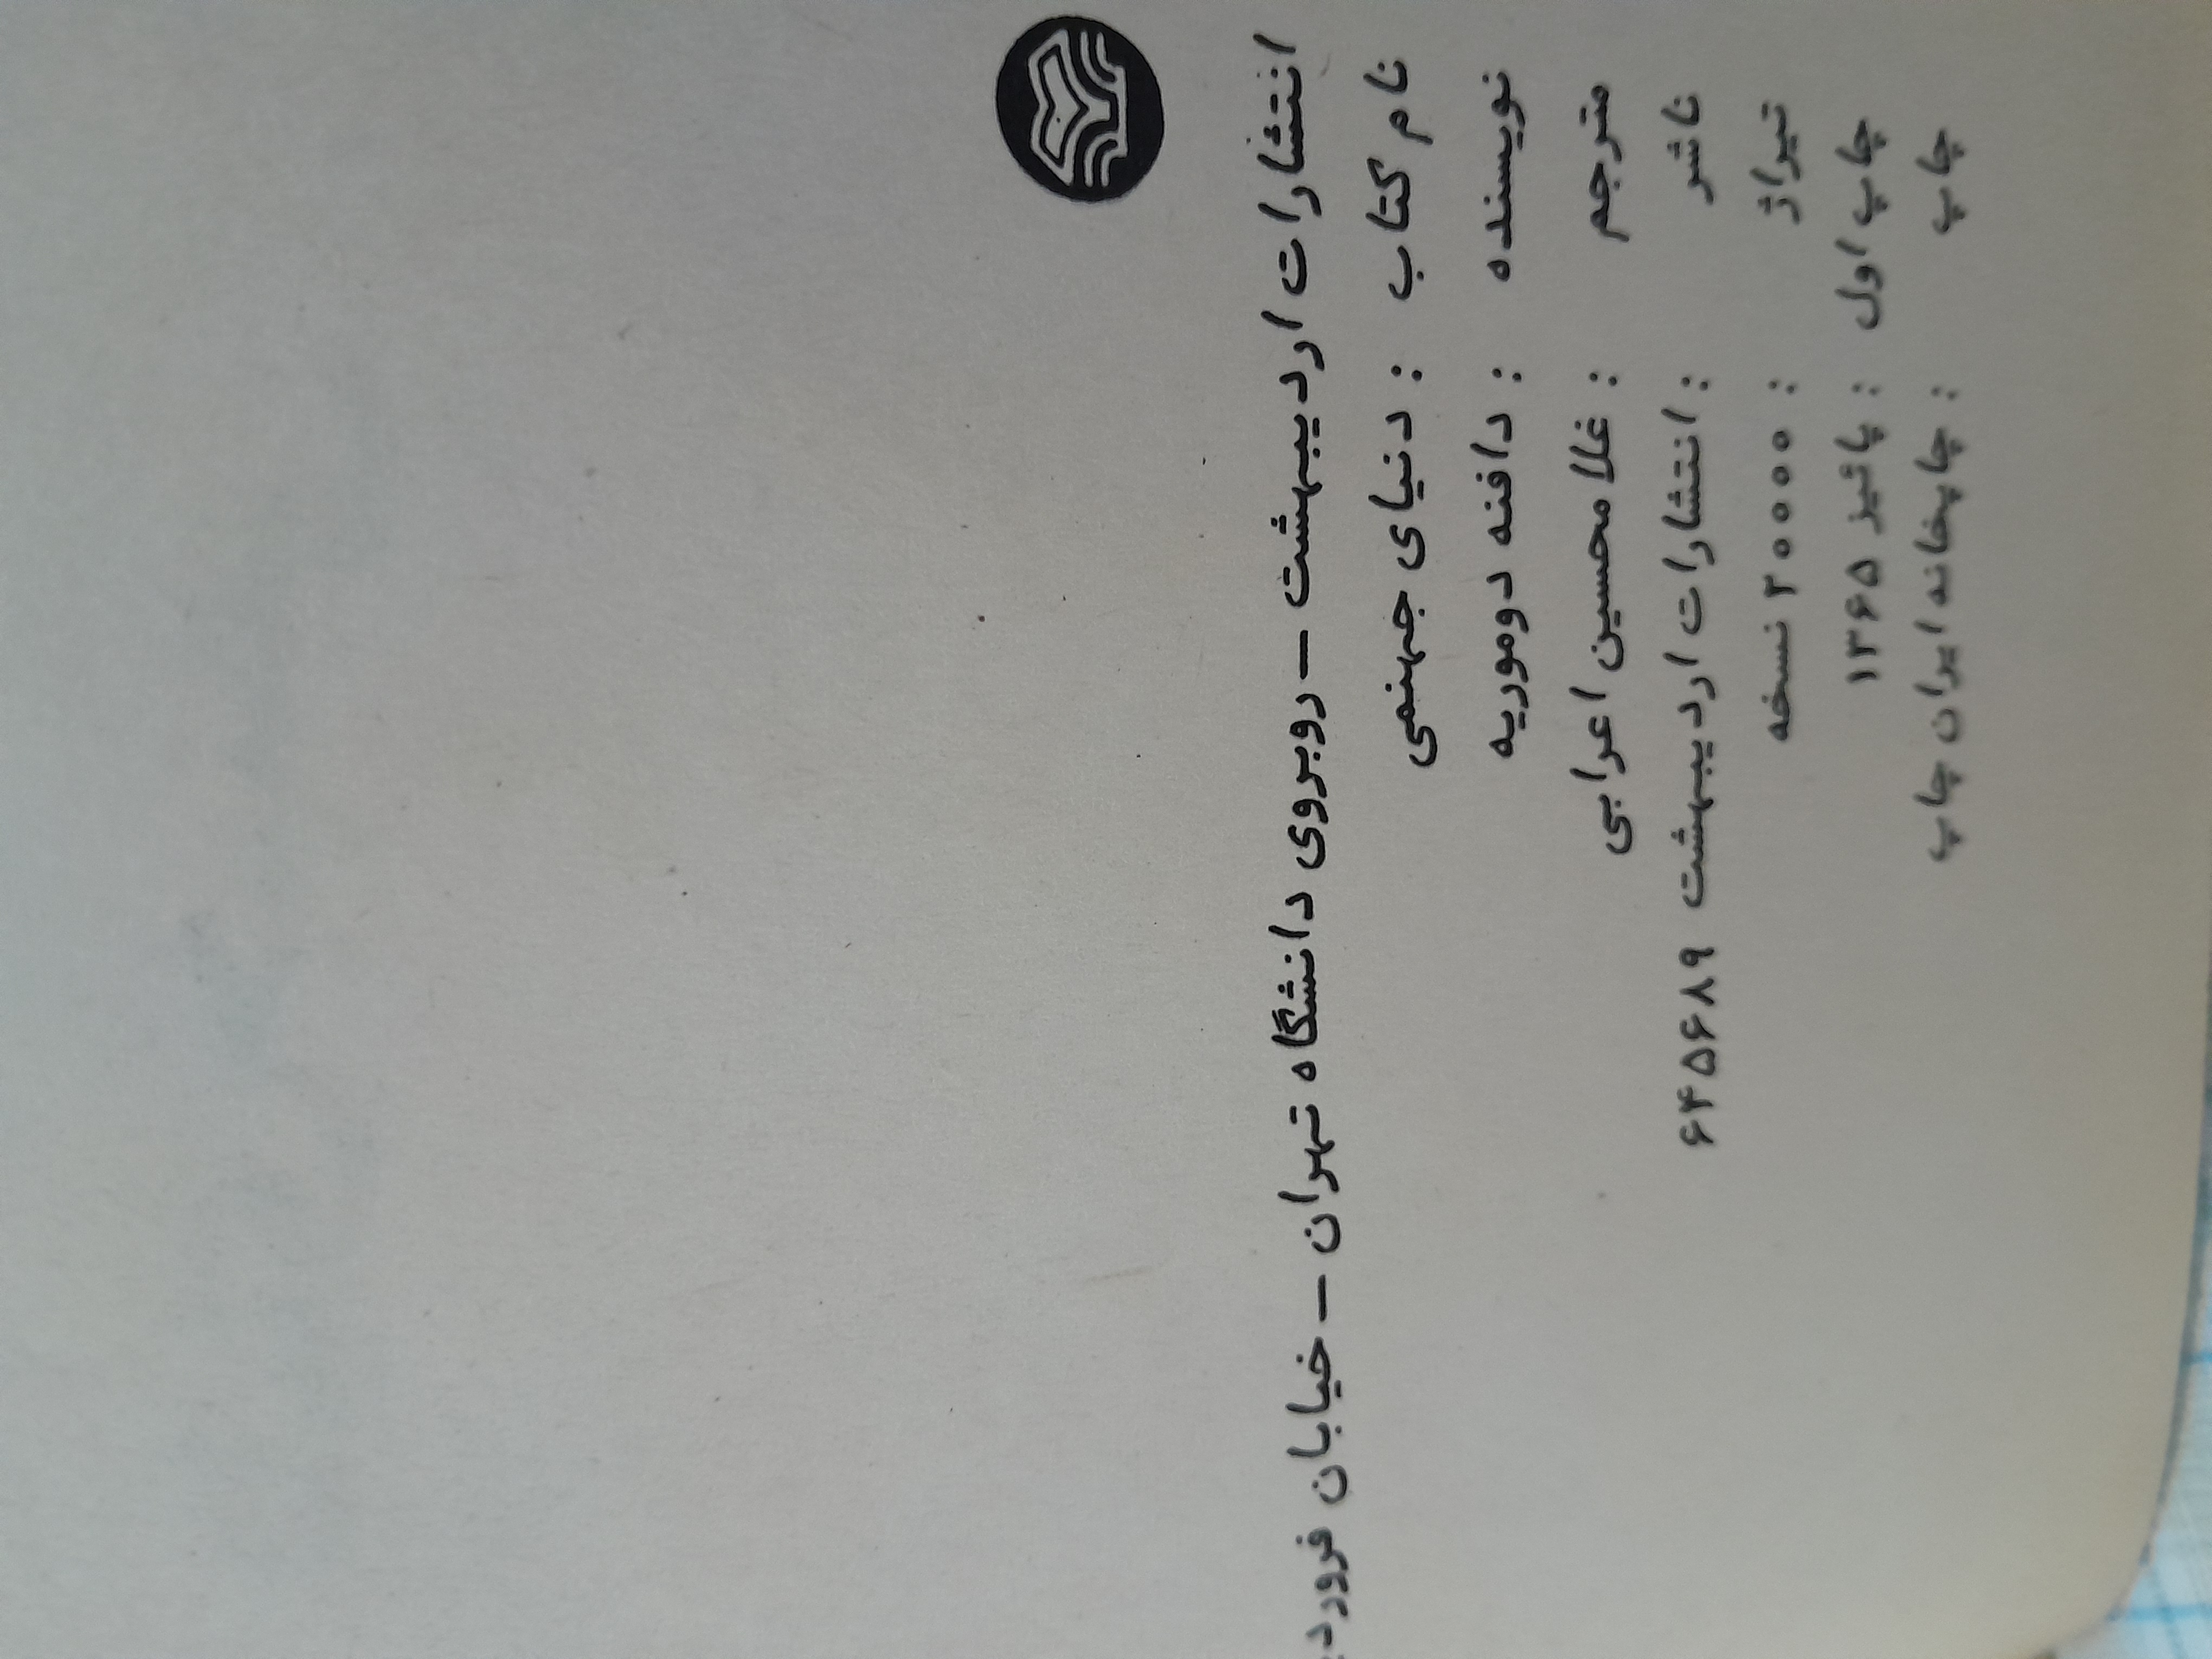 انتشارات اردیبهشت – روبروی دانشگاه تهران – خیابان فرورد
نام کتاب : دنیای جهنمی
نویسنده : دافنه دوموریه
مترجم : غلامحسین اعرابی
ناشر : انتشارات اردیبهشت ۶۴۵۶۸۹
تیراژ : ۲۰۰۰۰ نسخه
چاپ اول : پائیز ۱۳۶۵
چاپ : چاپخانه ایران چاپ